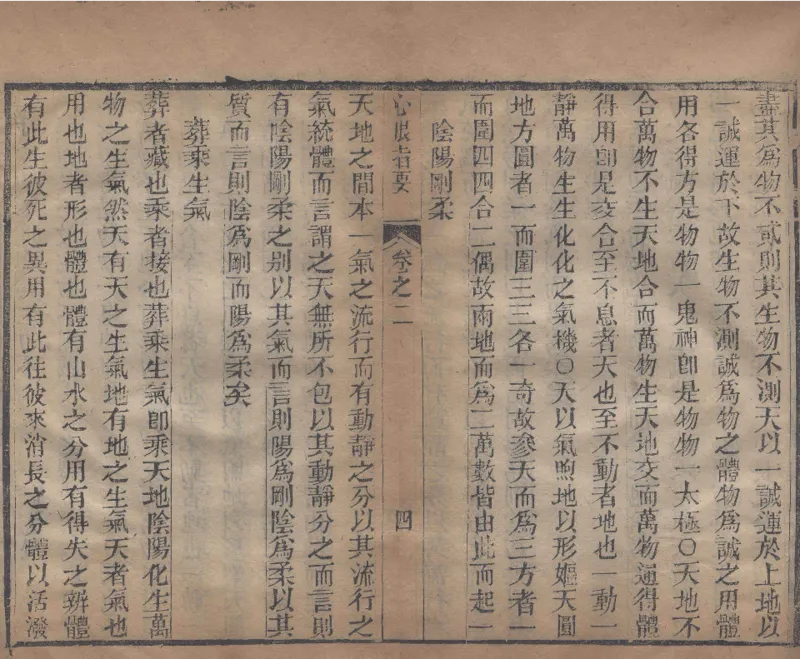 盡其爲物不貳則其生物不測天以一誠運於上地以
一誠運於下故生物不測誠爲物之體物爲誠之用體
用各得方是物物一鬼神卽是物物一太極○天地不
合萬物不生天地合而萬物生天地交而萬物通得體
得用卽是交合至不息者天也至不動者地也一動一
靜萬物生生化化之氣機○天以氣煦地以形嫗天圓
地方圓者一而圍三三各一奇故參天而爲三方者一
而圍四四合二偶故兩地而爲二萬數皆由此而起一
陰陽剛柔
心眼指要
卷之二
四
天地之間本一氣之流行而有動靜之分以其流行之
氣統體而言謂之天無所不包以其動靜分之而言則
有陰陽剛柔之别以其氣而言則陽爲剛陰爲柔以其
質而言則陰爲剛而陽爲柔矣
葬乘生氣
葬者藏也乘者接也葬乘生氣卽乘天地陰陽化生萬
物之生氣然天有天之生氣地有地之生氣天者氣也
用也地者形也體也體有山水之分用有得失之辨體
有此生彼死之異用有此往彼來消長之分體以活潑